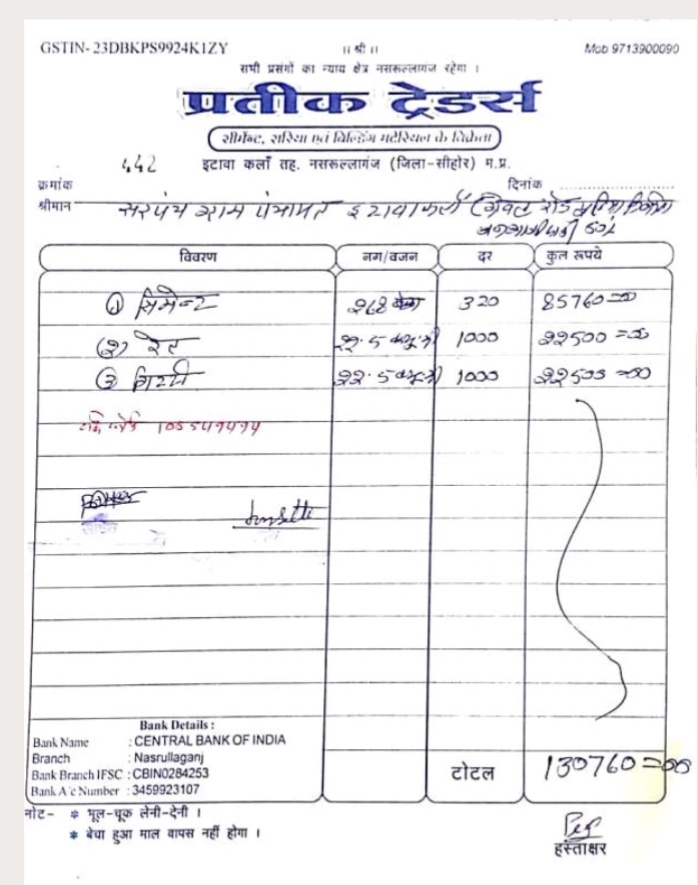 GSTIN- 23DBKPS9924K1ZY ।। श्री ।। Mob 9713900090
सभी प्रसंगों का न्याय क्षेत्र नसरूल्लागंज रहेगा ।
प्रतीक ट्रेडर्स
सीमेन्ट, सरिया एवं बिल्डिंग मटेरियल के विक्रेता
442 इटावा कलाँ तह. नसरूल्लागंज (जिला-सीहोर) म.प्र.
क्रमांक दिनांक ....................
श्रीमान सरपंच ग्राम पंचायत इटावा कलाँ
विवरण नग/वजन दर कुल रूपये
① सिमेन्ट 268 320 85760=00
② रेत 22.5 1000 22500=00
③ गिट्टी 22.5 1000 22500=00
105549494
Bank Details :
Bank Name : CENTRAL BANK OF INDIA
Branch : Nasrullaganj
Bank Branch IFSC : CBIN0284253
Bank A/c Number : 3459923107
टोटल 130760=00
नोट- * भूल-चूक लेनी-देनी ।
* बेचा हुआ माल वापस नहीं होगा ।
हस्ताक्षर